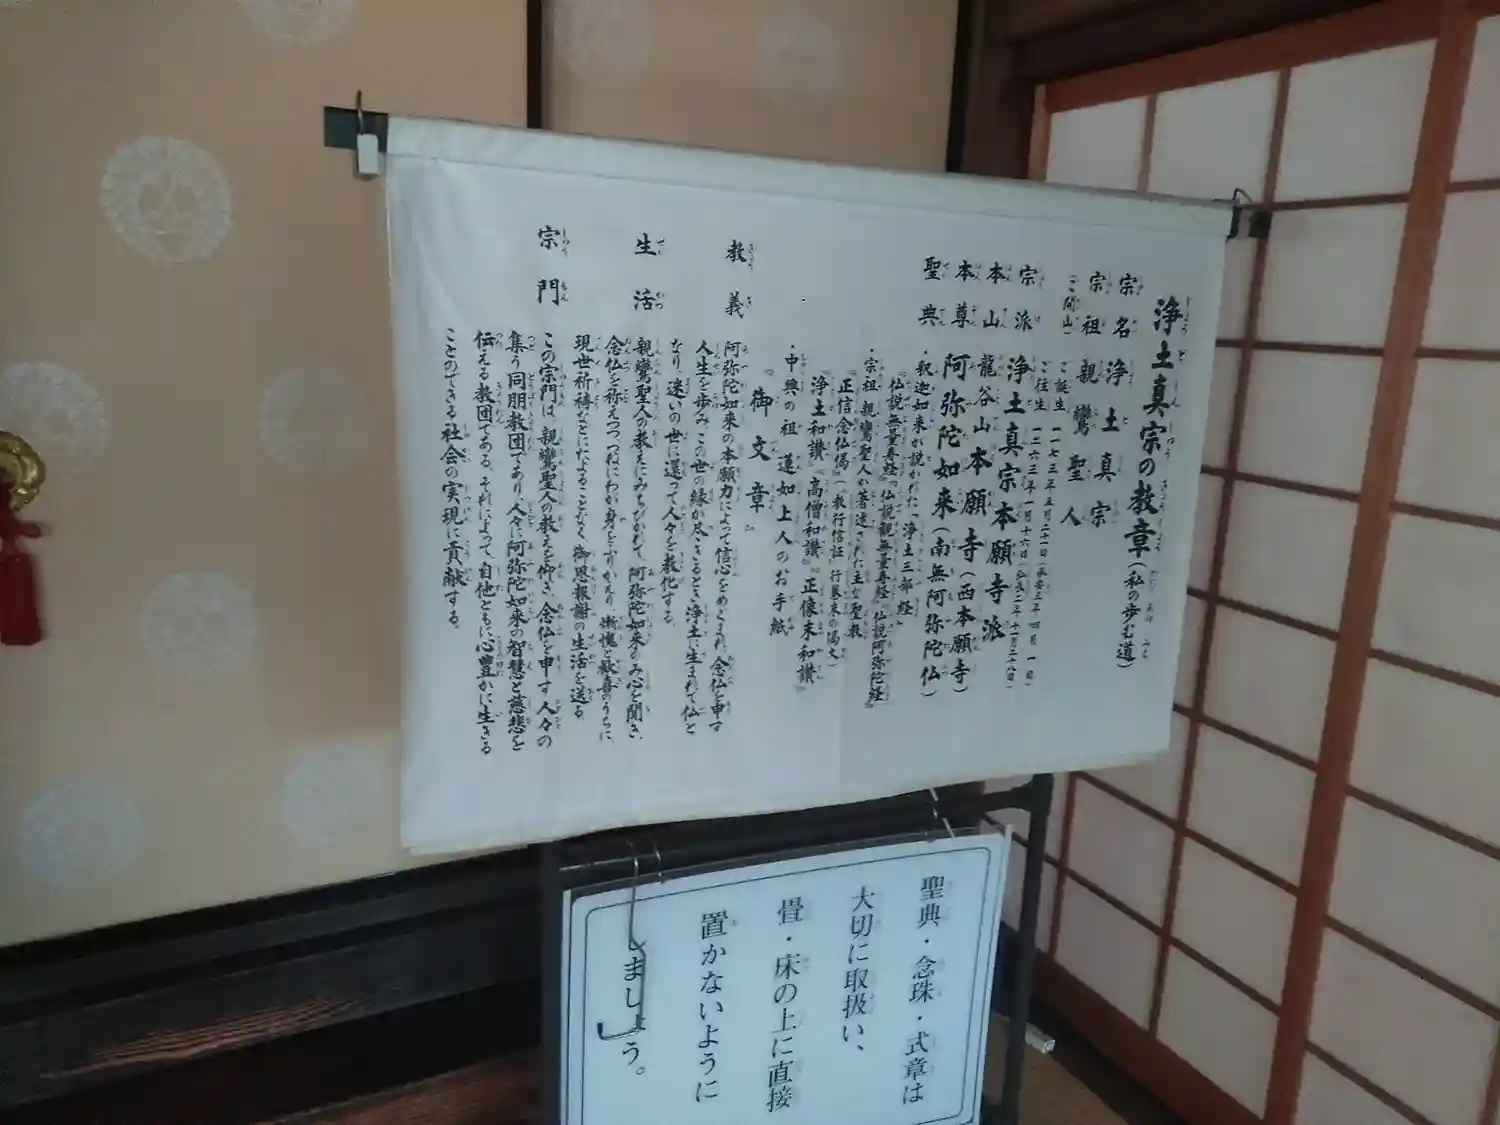 浄土真宗の教章（私の歩む道）
宗名 浄土真宗
宗祖 親鸞聖人
（ご開山） ご誕生 一一七三年五月二十一日（承安三年四月一日）
ご往生 一二六三年一月十六日（弘長二年十一月二十八日）
宗派 浄土真宗本願寺派
本山 龍谷山本願寺（西本願寺）
本尊 阿弥陀如来（南無阿弥陀仏）
聖典 ・釈迦如来が説かれた「浄土三部経」
『仏説無量寿経』『仏説観無量寿経』『仏説阿弥陀経』
・宗祖 親鸞聖人が著述された主な聖教
『正信念仏偈』（『教行信証』行巻末の偈文）
『浄土和讃』『高僧和讃』『正像末和讃』
・中興の祖 蓮如上人のお手紙
『御文章』
教義 阿弥陀如来の本願力によって信心をめぐまれ、念仏を申す
人生を歩み、この世の縁が尽きるとき浄土に生まれて仏と
なり、迷いの世に還って人々を教化する。
生活 親鸞聖人の教えにみちびかれて、阿弥陀如来のみ心を聞き、
念仏を称えつつ、つねにわが身をふりかえり、慚愧と歓喜のうちに、
現世祈祷などにたよることなく、御恩報謝の生活を送る。
宗門 この宗門は、親鸞聖人の教えを仰ぎ、念仏を申す人々の
集う同朋教団であり、人々に阿弥陀如来の智慧と慈悲を
伝える教団である。それによって、自他ともに心豊かに生きる
ことのできる社会の実現に貢献する。
聖典・念珠・式章は
大切に取扱い、
畳・床の上に直接
置かないように
しましょう。